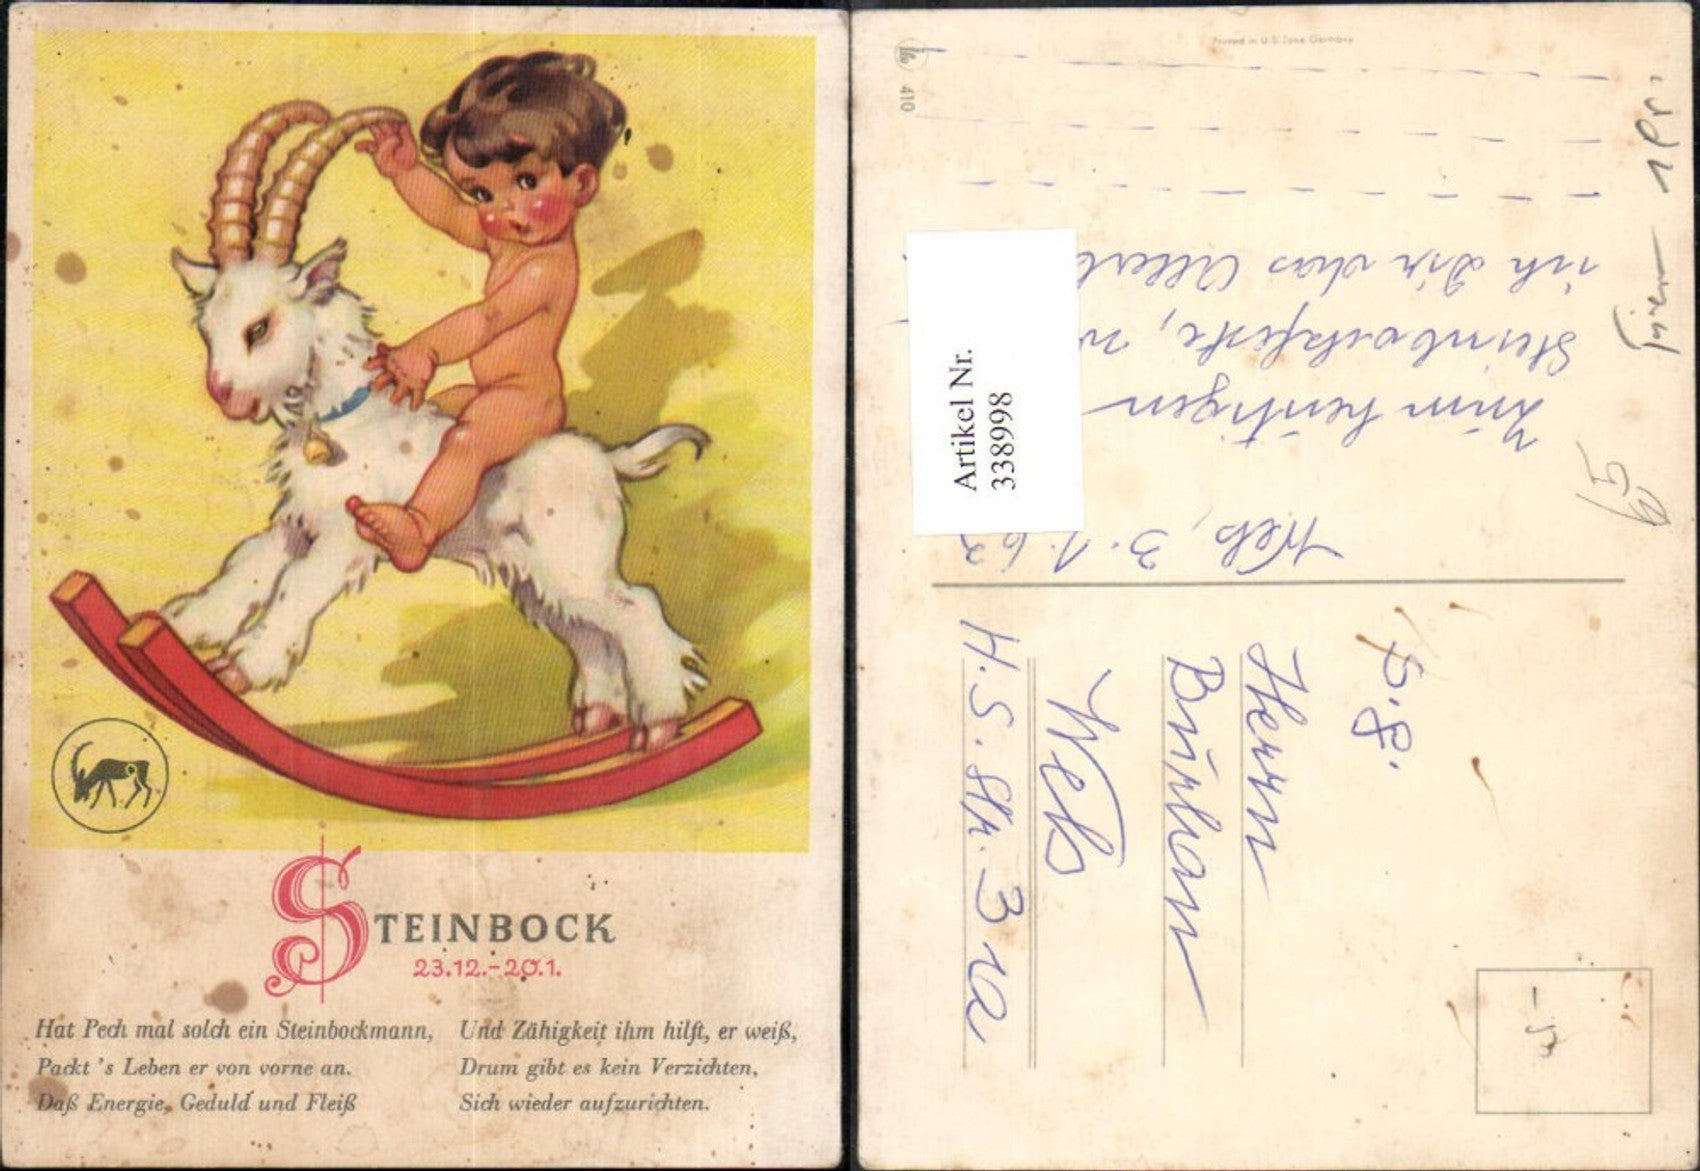 STEINBOCK
23.12.-20.1.
Hat Pech mal solch ein Steinbockmann,
Packt 's Leben er von vorne an.
Daß Energie, Geduld und Fleiß
Und Zähigkeit ihm hilft, er weiß,
Drum gibt es kein Verzichten,
Sich wieder aufzurichten.
Printed in U.S. Zone Germany
410
Artikel Nr.
338998
Wels, 3.1.62
Zum heutigen
Steinbockfeste,
ich Dir das
Herrn
Wels
H. S. Str. 3